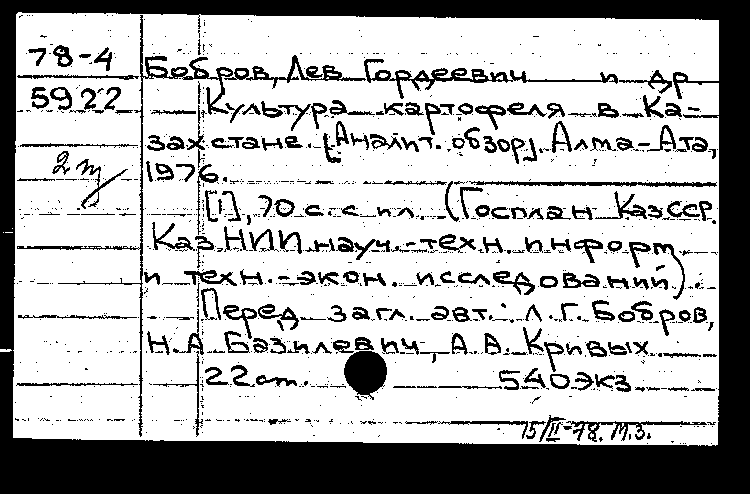 78-4
5922
2 э
Бобров, Лев Гордеевич и др.
Культура картофеля в Ка-
захстане. [Аналит. обзор]. Алма-Ата,
1976.
[1], 70 с. с ил. (Госплан КазССР.
Каз.НИИ науч.-техн. информ.
и техн.-экон. исследований).
Перед загл. авт.: Л.Г. Бобров,
Н.А Базилевич, А.А. Кривых
22 см. 540 экз
15/II-78. М.З.